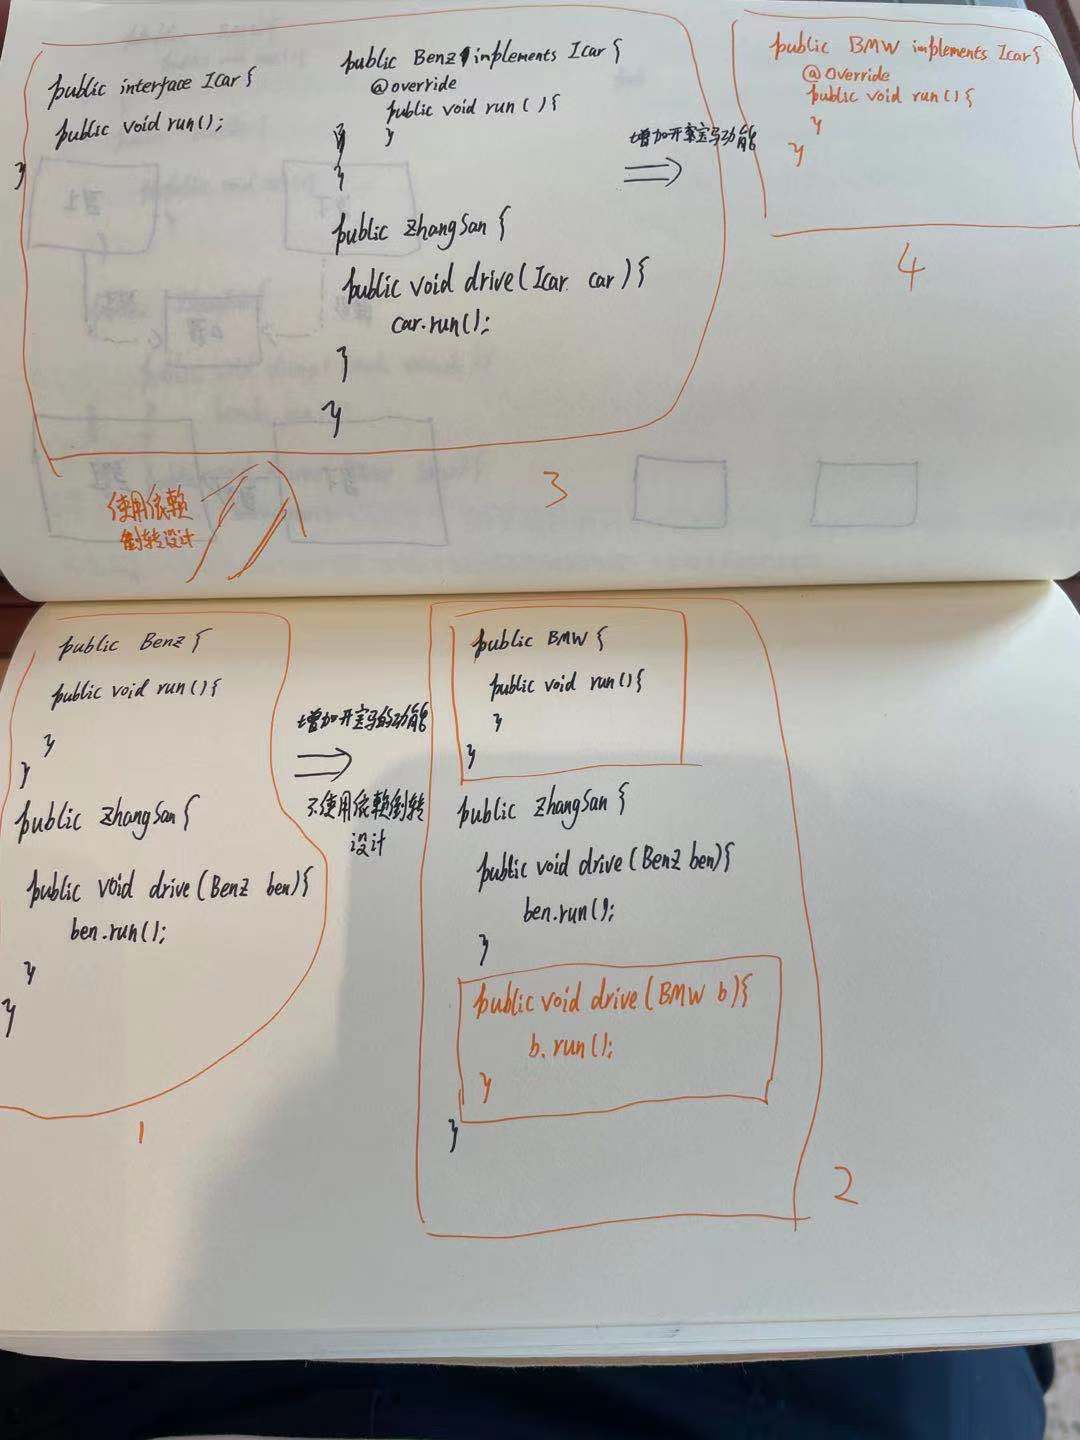 public interface Icar {
public void run();
}
public Benz implements Icar {
@override
public void run() {
}
}
}
public zhangSan {
public void drive(Icar car) {
car.run();
}
}
增加开宝马功能
public BMW implements Icar {
@Override
public void run() {
}
}
4
3
使用依赖
倒转设计
public Benz {
public void run() {
}
}
public zhangSan {
public void drive(Benz ben) {
ben.run();
}
}
1
增加开宝马的功能
不使用依赖倒转
设计
public BMW {
public void run() {
}
}
public zhangSan {
public void drive(Benz ben) {
ben.run();
}
public void drive(BMW b) {
b.run();
}
}
2